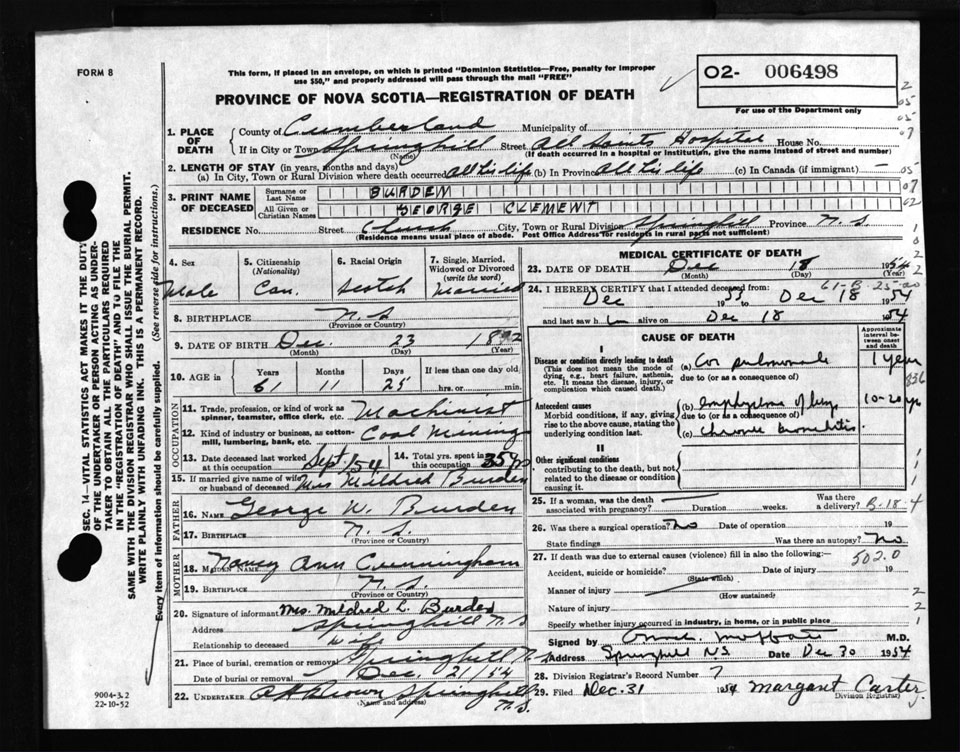 FORM 8
This form, if placed in an envelope, on which is printed "Dominion Statistics—Free, penalty for improper
use $50," and properly addressed will pass through the mail "FREE"
O2- 006498
For use of the Department only
PROVINCE OF NOVA SCOTIA—REGISTRATION OF DEATH
SEC. 14—VITAL STATISTICS ACT MAKES IT THE DUTY
OF THE UNDERTAKER OR PERSON ACTING AS UNDER-
TAKER TO OBTAIN ALL THE PARTICULARS REQUIRED
IN THE "REGISTRATION OF DEATH" AND TO FILE THE
SAME WITH THE DIVISION REGISTRAR WHO SHALL ISSUE THE BURIAL PERMIT.
WRITE PLAINLY WITH UNFADING INK. THIS IS A PERMANENT RECORD.
Every item of information should be carefully supplied. (See reverse side for instructions.)
1. PLACE OF DEATH County of Cumberland Municipality of
If in City or Town Springhill Street All Saints Hospital House No.
(Name) (If death occurred in a hospital or institution, give the name instead of street and number)
2. LENGTH OF STAY (in years, months and days)
(a) In City, Town or Rural Division where death occurred all his life (b) In Province all his life (c) In Canada (if immigrant)
3. PRINT NAME OF DECEASED Surname or Last Name BURDEN
All Given or Christian Names GEORGE CLEMENT
RESIDENCE No. Street Church City, Town or Rural Division Springhill Province N.S.
(Residence means usual place of abode. Post Office Address for residents in rural parts not sufficient)
4. Sex Male
5. Citizenship (Nationality) Can.
6. Racial Origin Scotch
7. Single, Married, Widowed or Divorced (write the word) Married
8. BIRTHPLACE N.S.
(Province or Country)
9. DATE OF BIRTH Dec. 23 1892
(Month) (Day) (Year)
10. AGE in Years Months Days If less than one day old
61 11 25 hrs. or min.
OCCUPATION
11. Trade, profession, or kind of work as spinner, teamster, office clerk, etc. Machinist
12. Kind of industry or business, as cotton-mill, lumbering, bank, etc. Coal Mining
13. Date deceased last worked at this occupation Sept/54 14. Total yrs. spent in this occupation 35 yrs
15. If married give name of wife or husband of deceased Mrs Mildred Burden
FATHER
16. NAME George W. Burden
17. BIRTHPLACE N.S.
(Province or Country)
MOTHER
18. MAIDEN NAME Nancy Ann Cunningham
19. BIRTHPLACE N.S.
(Province or Country)
20. Signature of informant Mrs. Mildred L. Burden
Address Springhill N.S
Relationship to deceased Wife
21. Place of burial, cremation or removal Springhill N.S
Date of burial or removal Dec. 21/54
22. UNDERTAKER Brown Springhill N.S.
(Name and address)
9004-3.2
22-10-52
MEDICAL CERTIFICATE OF DEATH
23. DATE OF DEATH Dec 18 1954
(Month) (Day) (Year)
24. I HEREBY CERTIFY that I attended deceased from:
Dec 1953 to Dec 18 1954
and last saw him alive on Dec 18 1954
CAUSE OF DEATH
Approximate interval between onset and death
I
Disease or condition directly leading to death
(This does not mean the mode of dying, e.g., heart failure, asthenia, etc. It means the disease, injury, or complication which caused death.)
(a) Cor pulmonale 1 year
due to (or as a consequence of)
Antecedent causes
Morbid conditions, if any, giving rise to the above cause, stating the underlying condition last.
(b) Emphysema of lung 10-20 yrs
due to (or as a consequence of)
(c) Chronic bronchitis
II
Other significant conditions
contributing to the death, but not related to the disease or condition causing it.
25. If a woman, was the death associated with pregnancy? Duration weeks. Was there a delivery?
B-18-4
26. Was there a surgical operation? No Date of operation 19
State findings Was there an autopsy? No
27. If death was due to external causes (violence) fill in also the following:—
502.0
Accident, suicide or homicide? Date of injury 19
(State which)
Manner of injury
(How sustained)
Nature of injury
Specify whether injury occurred in industry, in home, or in public place
Signed by M.D.
Address Springhill N.S. Date Dec 30 1954
28. Division Registrar's Record Number 7
29. Filed Dec. 31 1954 Margaret Carter
Division Registrar